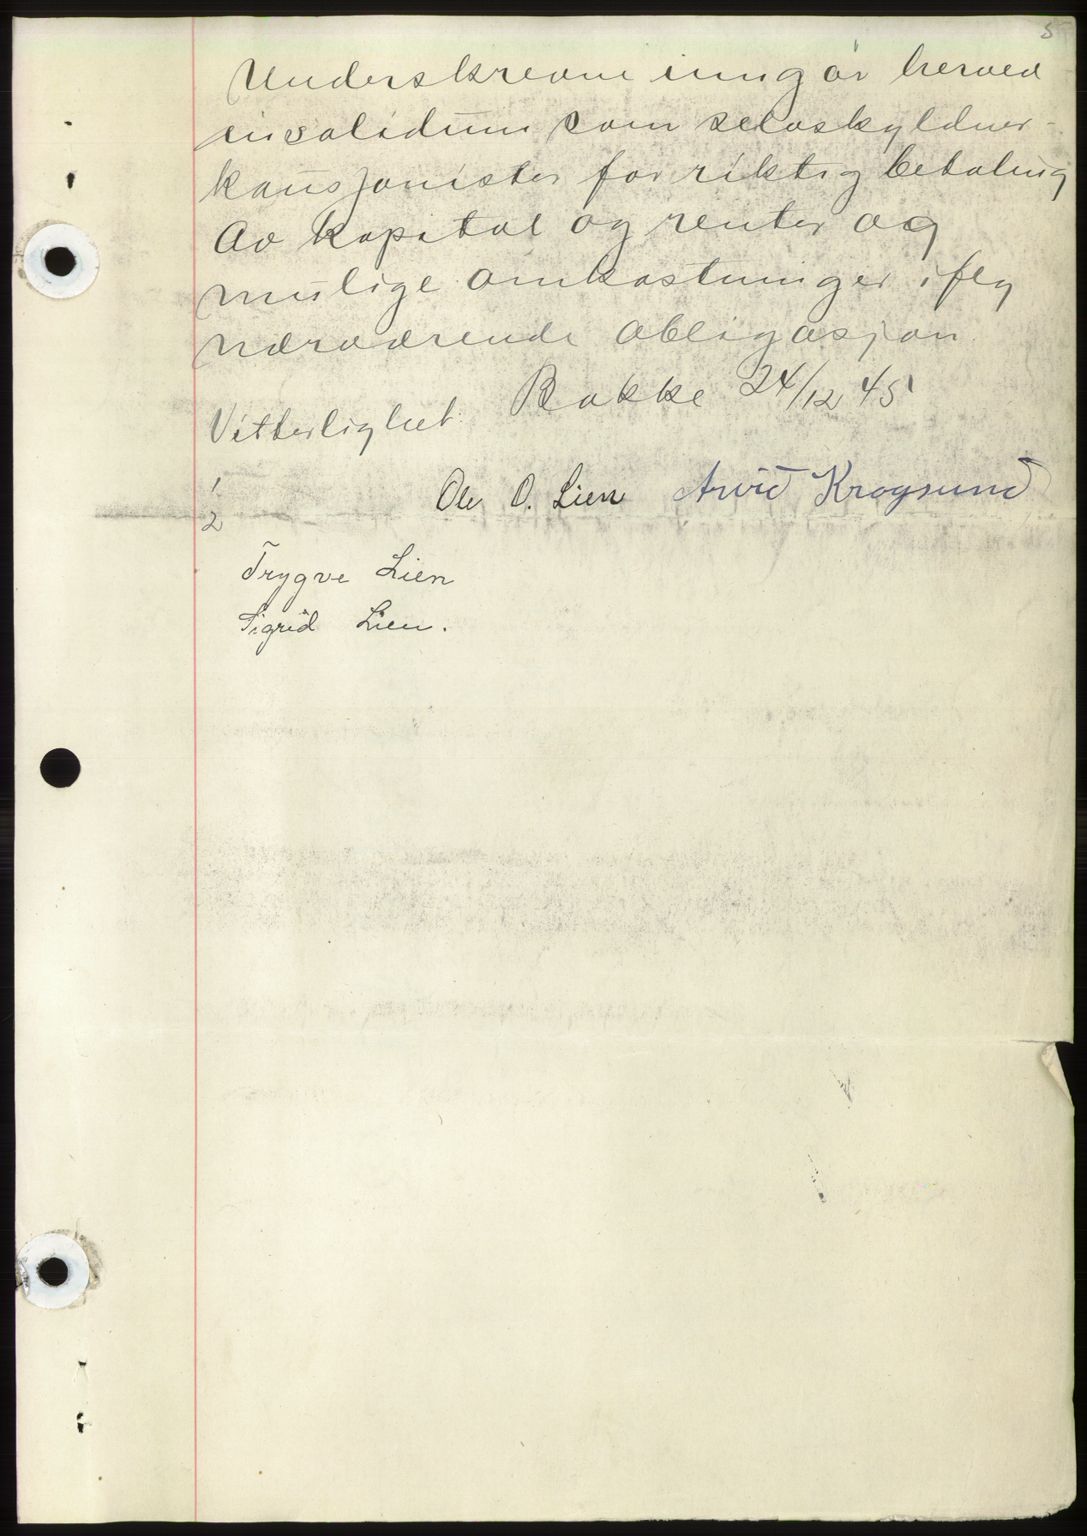 5
Underskrevne inngår herved
insolidum som selvskyldner-
kausjonister for riktig betaling
Av kapital og renter og
mulige omkostninger iflg
nærværende obligasjon.
Bakke 24/12 45
Vitterlighet:
1
Ole O. Lien Arvid Krogsund
2
Trygve Lien
Sigrid Lien.